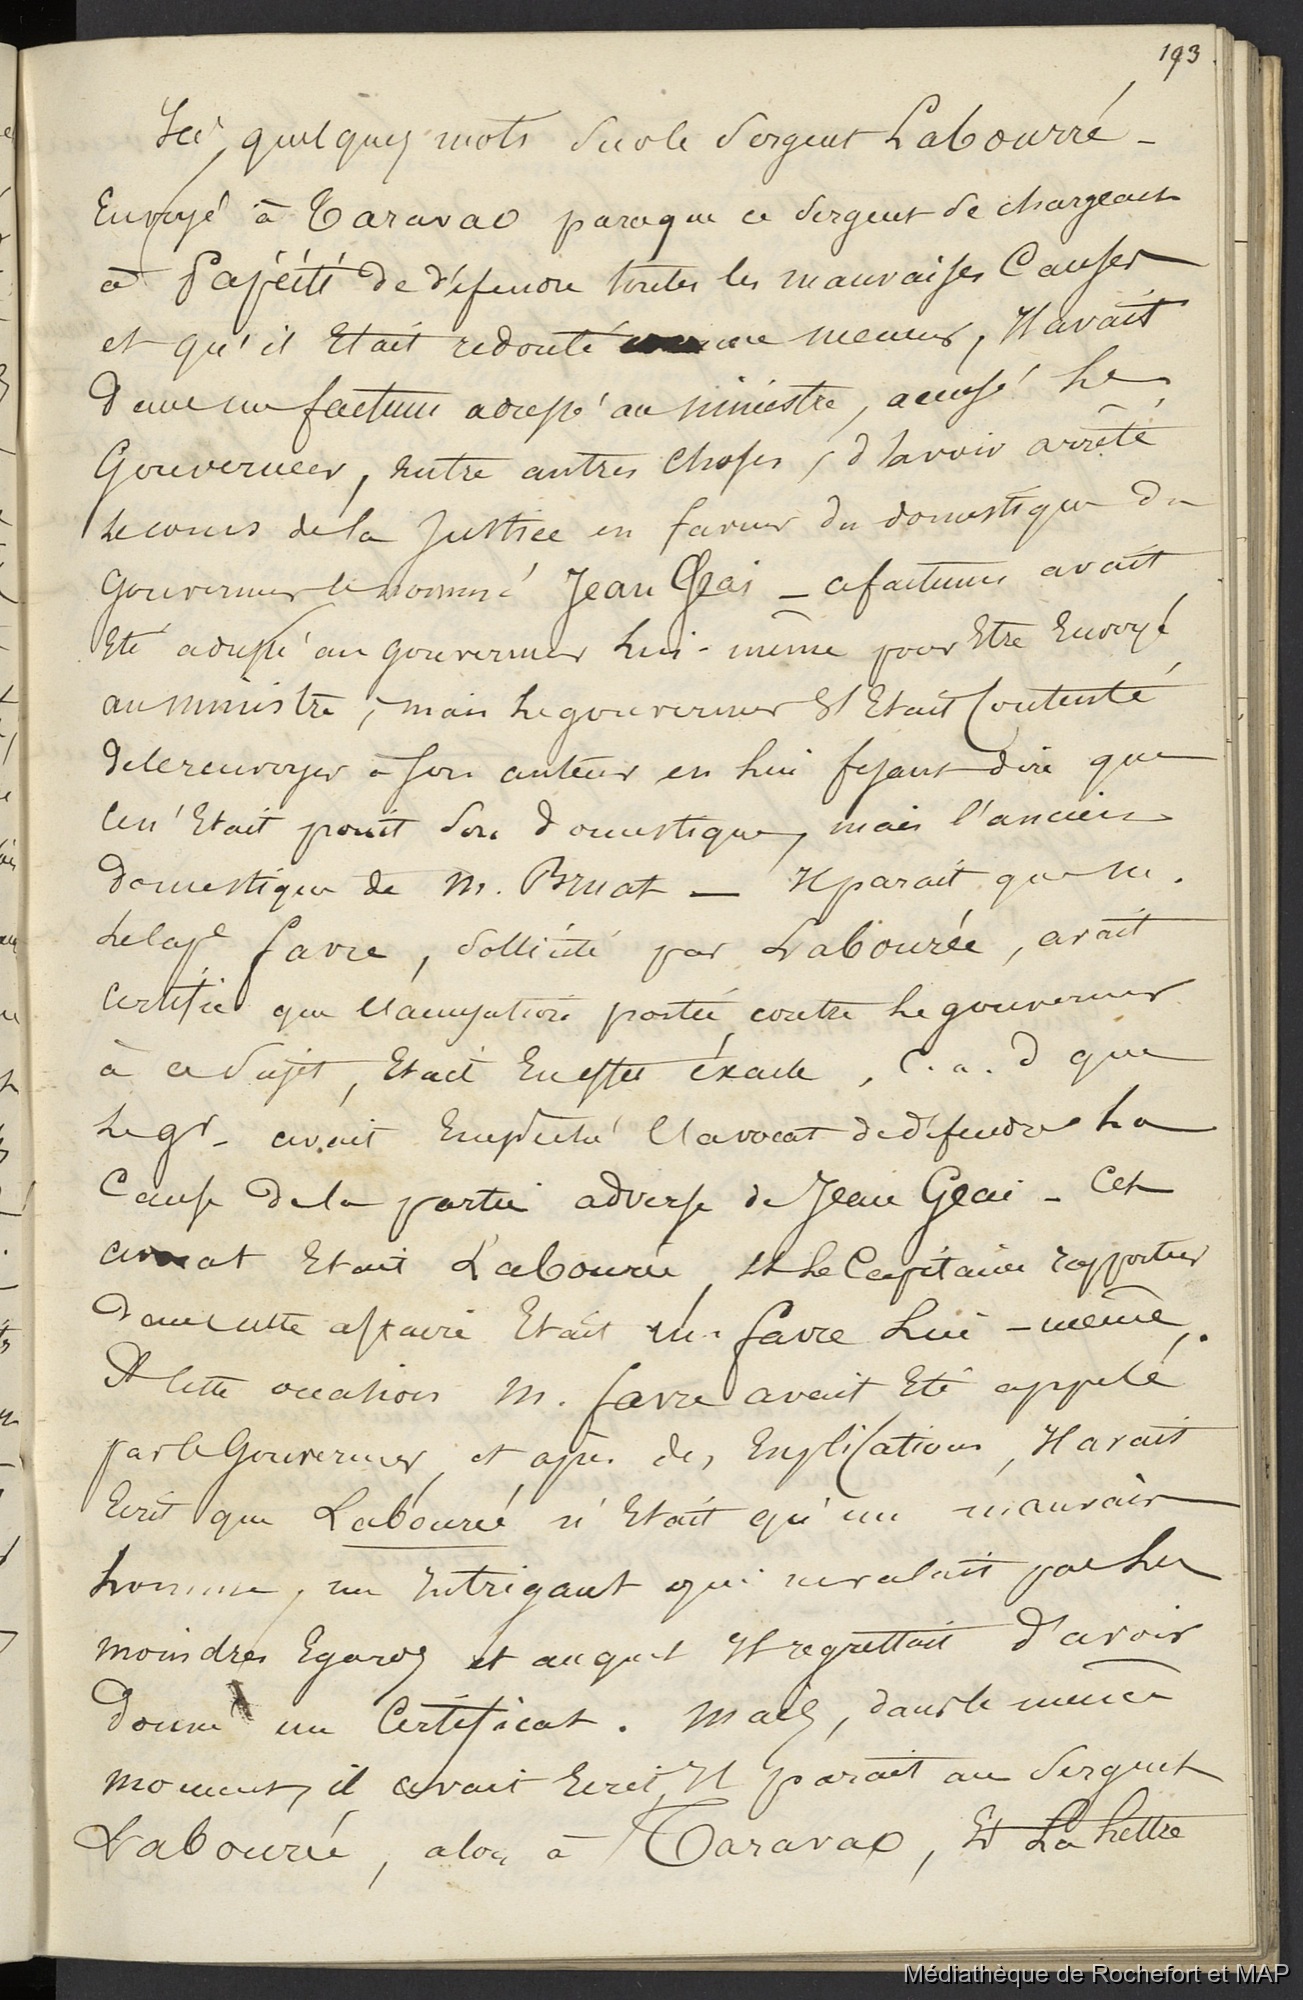 193
Ici, quelques mots sur le Sergent Labourré -
Envoyé à Taravao parceque ce Sergent se chargeait
à Papéiti de défendre toutes les mauvaises Causes
et qu'il Etait redouté comme meneur, Il avait
dans un factum adressé au Ministre, accusé Le
Gouverneur, entre autres choses, d'avoir arrêté
le cours de la Justice en faveur du domestique du
Gouverneur le nommé Jean Geai - ce factum avait
Eté adressé au gouverneur Lui-même pour Etre Envoyé
au Ministre, mais Le gouverneur S'Etait Contenté
de le renvoyer à son auteur en Lui fesant dire que
Ce n'Etait point son domestique, mais l'ancien
Domestique de M. Bruat - Il parait que M.
Le Cape favre, sollicité par Labourée, avait
Certifié que l'accusation portée contre Le gouverneur
à ce sujet, Etait En effet éxacte, c.a.d que
Le gr. avait Empêché l'avocat de défendre La
Cause de la partie adverse de Jean Geai - Cet
avocat Etait Labourée, Et Le Capitaine rapporteur
dans cette affaire Etait M. favre Lui-même.
A Cette occasion M. favre avait Eté appelé
par le Gouverneur, et après des Explications, Il avait
Ecrit que Labourée n'Etait qu'un mauvais
homme, un Intrigant qui ne valait pas Les
moindres Egards et auquel Il regrettait d'avoir
Donné un Certificat. Mais, dans le même
moment, il avait Ecrit, Il parait au Sergent
Labourée, alors à Taravao, Et La Lettre
Médiathèque de Rochefort et MAP